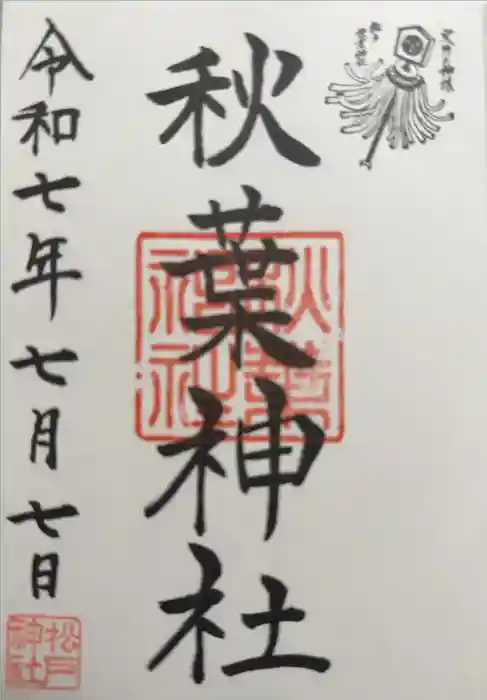 秋葉神社
秋葉
神社
令和七年七月七日
松戸
神社